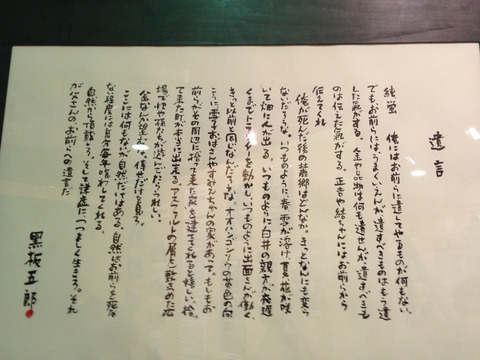 遺言
純、蛍 俺にはお前らに遺してやるものが何もない。
でもお前らには、うまくいえんが、遺すべきものはもう遺
した気がする。金や品物は何も遺せんが、遺すべきも
のは伝えた気がする。正吉や結ちゃんにはお前らから
伝えてくれ
俺が死んだ後の麓郷はどんなか。きっとなんにも変ら
ないだろうな。いつものように春、雪が溶け、夏、花が咲
いて畑に人が出る。いつものように白井の親方が夜遅
くまでトラクターを動かし、いつものように出面さんが働く
きっと以前と同じなんだろうな。オオハンゴンソウの黄色の向
こうに雪子おばさんやすみえちゃんの家があって。もしもお
前らがその周辺に拾って来た家を建ててくれると嬉しい。拾っ
て来た町が本当に出来る。アスファルトの屑を敷きつめた広
場で快や孫たちが遊んでたらうれしい。
金なんか望むな。倖せだけを見ろ。
ここには何もないが自然だけはある。自然はお前らを死な
ない程度には充分毎年喰わしてくれる。
自然から頂戴しろ。そして謙虚につつましく生きろ。それ
が父さんのお前らへの遺言だ
黒板五郎